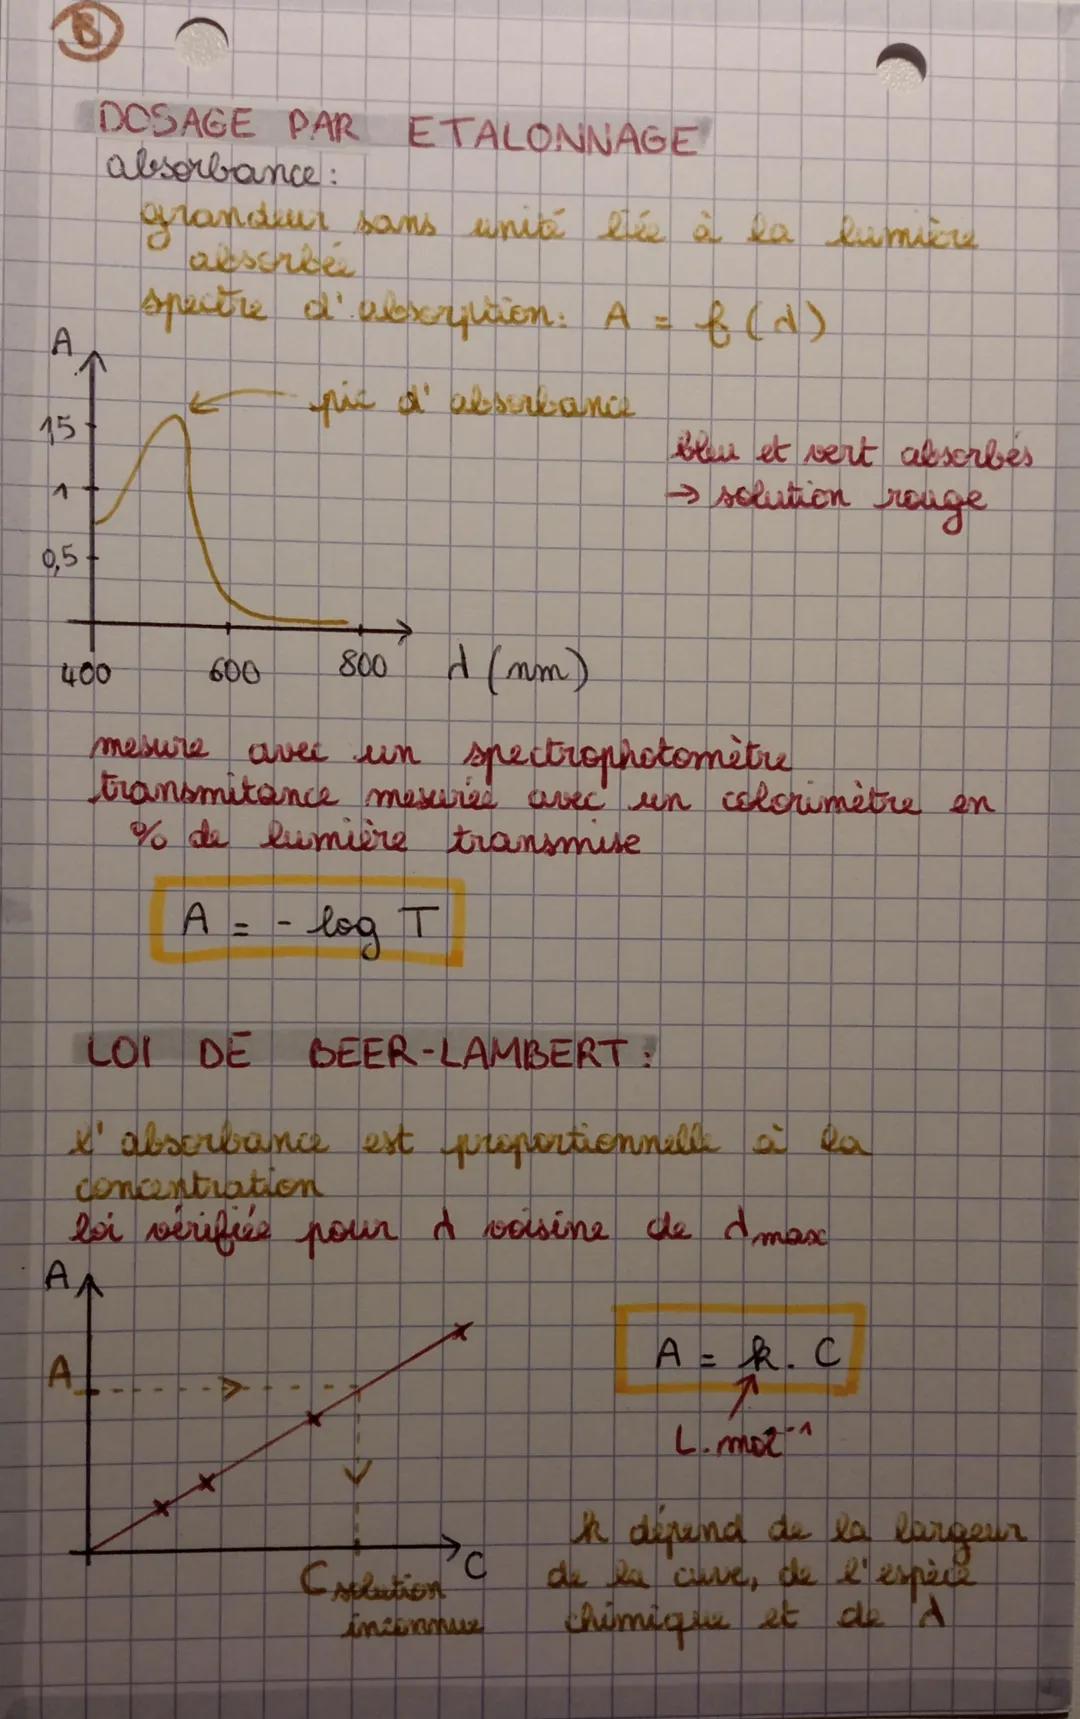 B
DOSAGE PAR ETALONNAGE
absorbance:
grandeur sans unité liée à la lumière
absorbée
spectre d'absorption: A = f(λ)
A
pic d'absorbance
1,5
bleu et vert absorbés
1
→ solution rouge
0,5
400 600 800 λ (nm)
mesure avec un spectrophotomètre
transmitance mesurée avec un colorimètre en
% de lumière transmise
A = - log T
LOI DE BEER-LAMBERT:
l'absorbance est proportionnelle à la
concentration
loi vérifiée pour λ voisine de λmax
A
A = k. C
A
L.mol⁻¹
C
k dépend de la largeur
de la cuve, de l'espèce
chimique et de λ
C solution
inconnue